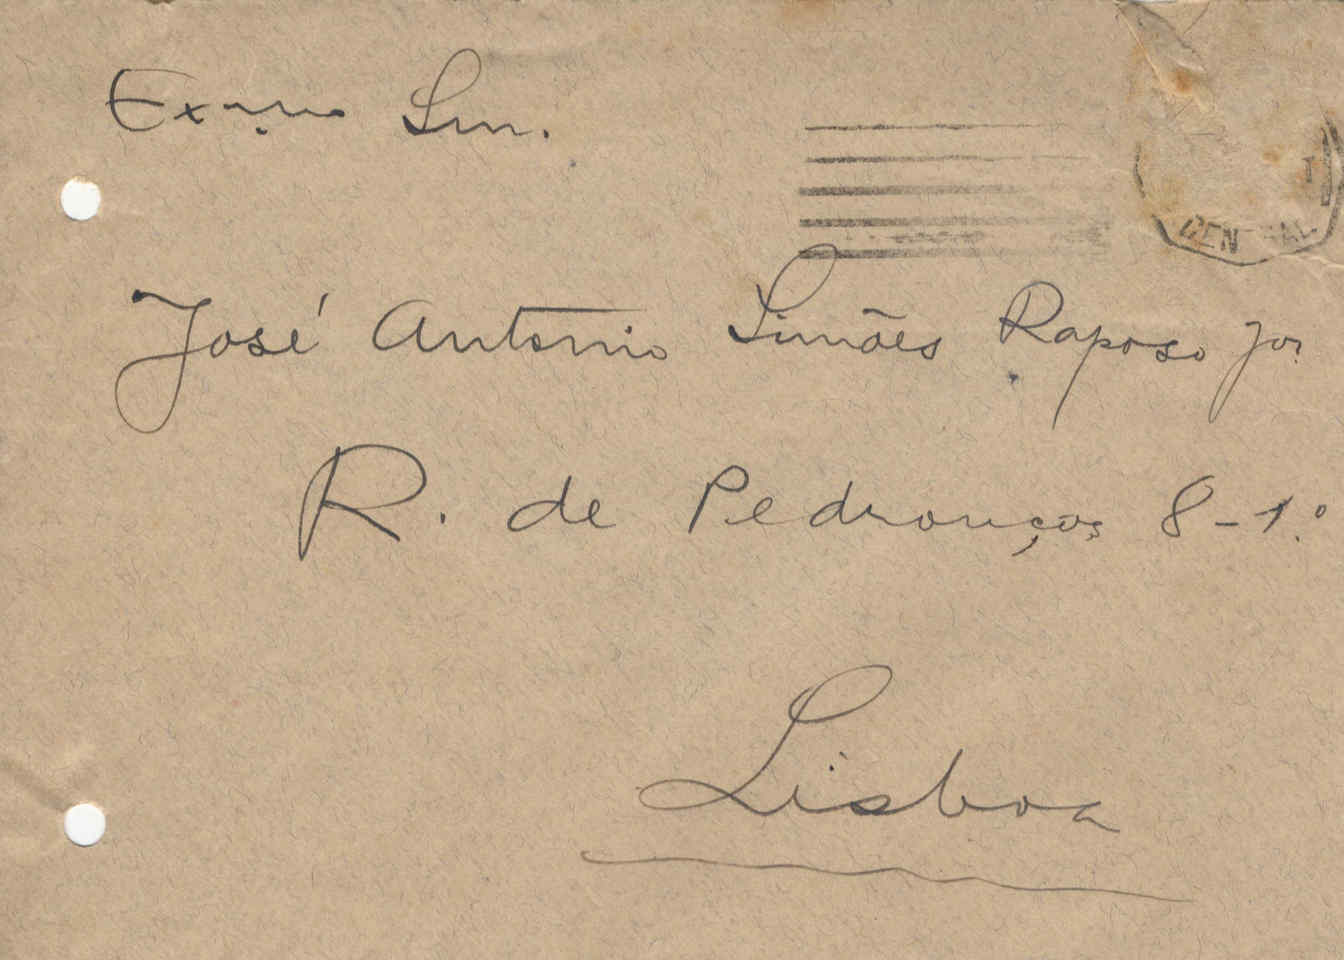 Exmo Snr.
1
CENTRAL
José Antonio Simões Raposo Jor
R. de Pedrouços 8-1.º
Lisboa